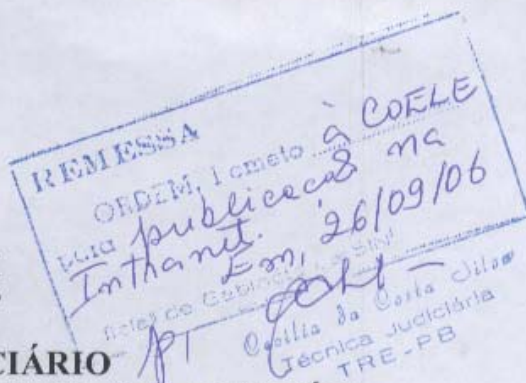 REMESSA
ORDEM, remeto à COELE
para publicação na
Inthanet.
Em, 26/09/06
de Gabinete
p/
Cecília da Costa Silva
Técnica Judiciária
TRE-PB
CIÁRIO